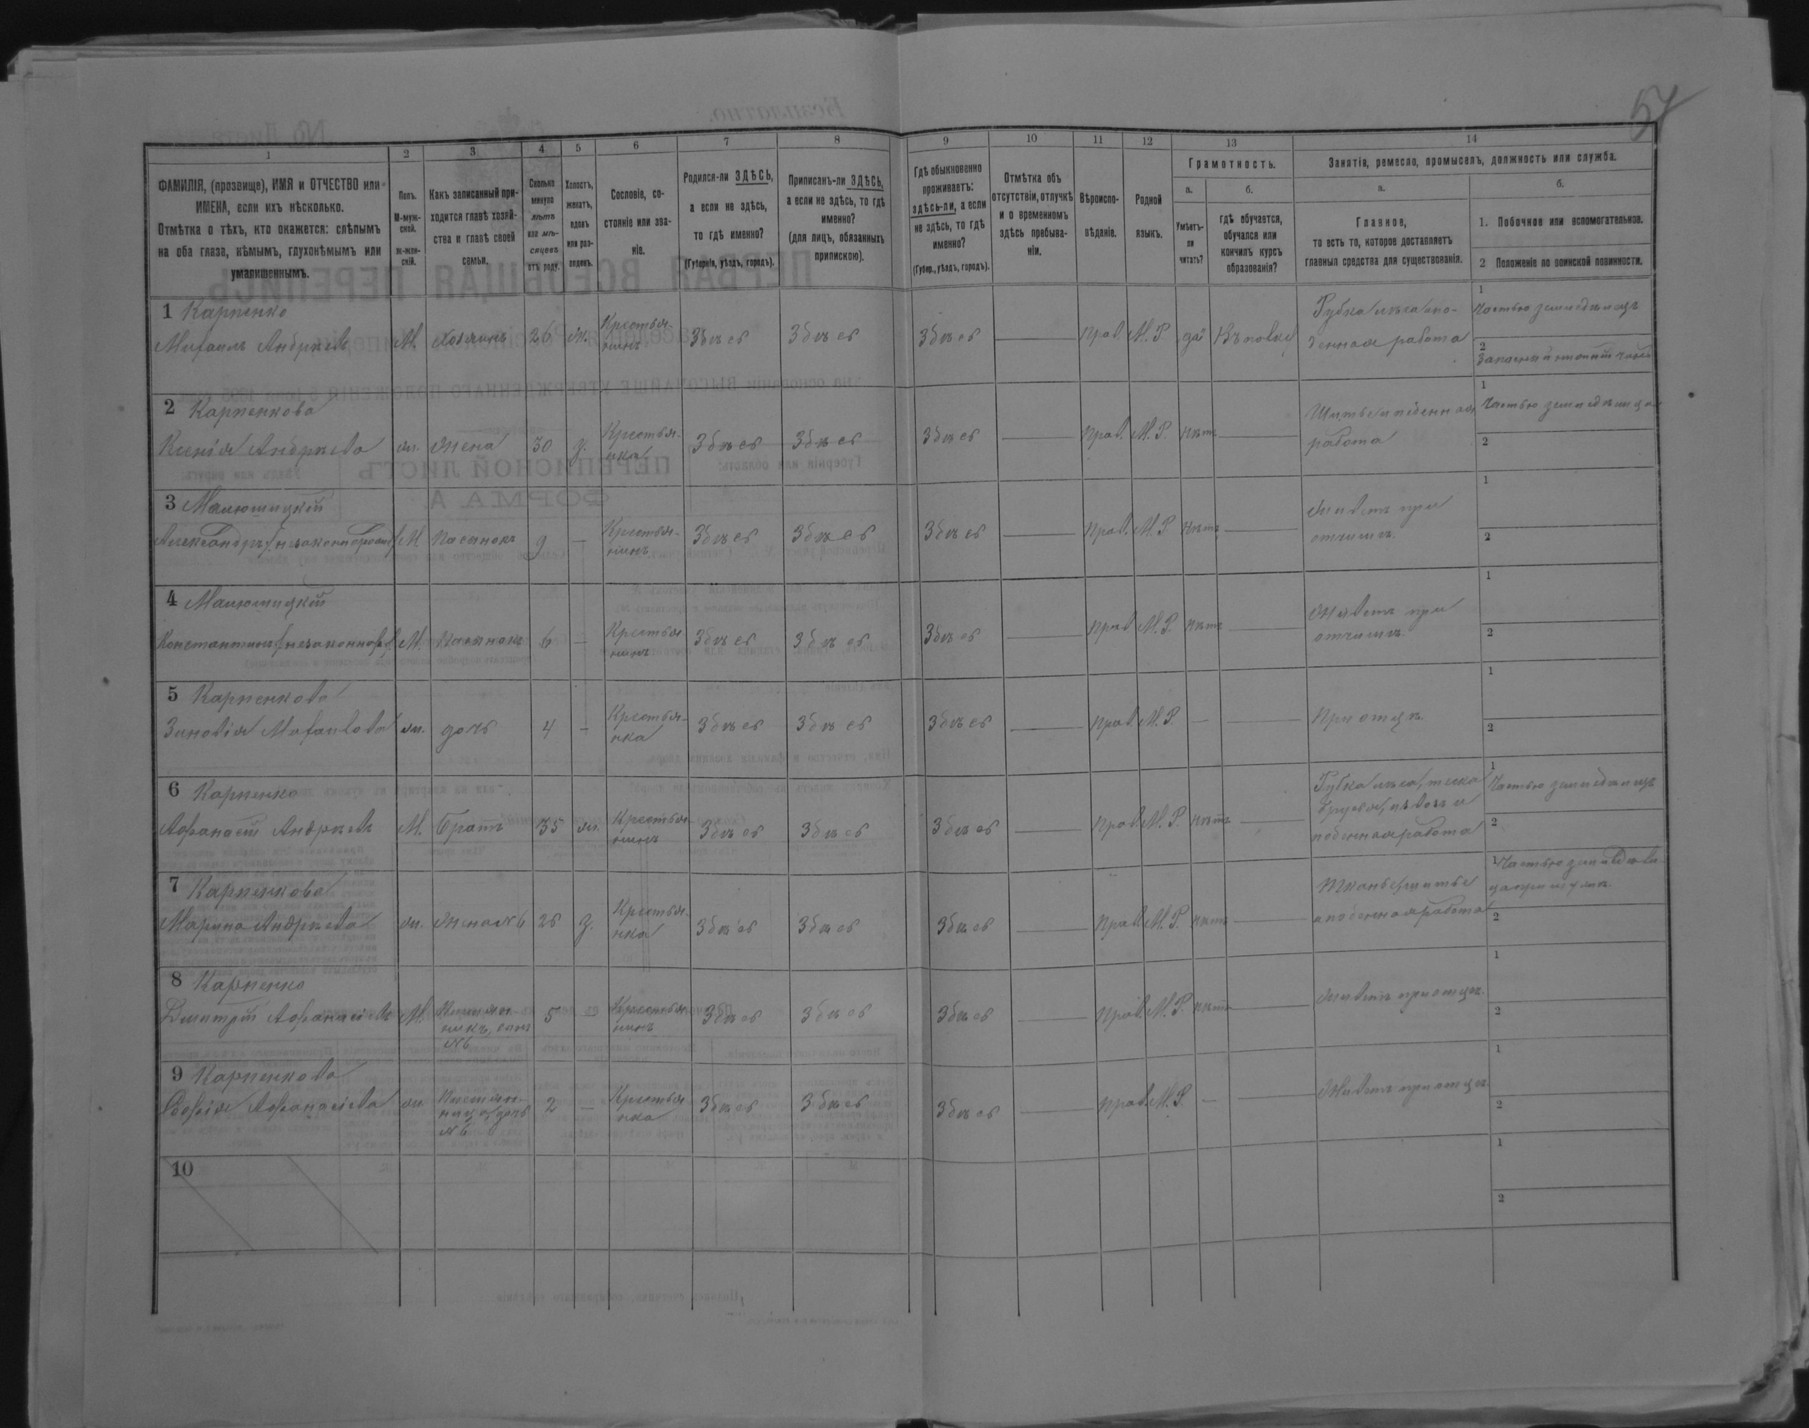 57
1 2 3 4 5 6 7 8 9 10 11 12 13 14
ФАМИЛІЯ, (прозвище), ИМЯ и ОТЧЕСТВО или
ИМЕНА, если ихъ нѣсколько.
Отмѣтка о тѣхъ, кто окажется: слѣпымъ
на оба глаза, нѣмымъ, глухонѣмымъ или
умалишеннымъ.
Полъ.
М-муж-
ской.
ж-жен-
скій.
Какъ записанный при-
ходится главѣ хозяй-
ства и главѣ своей
семьи.
Сколько
минуло
лѣтъ
или мѣ-
сяцевъ
отъ роду.
Холостъ,
женатъ,
вдовъ
или раз-
веденъ.
Сословіе, со-
стояніе или зва-
ніе.
Родился-ли ЗДѢСЬ,
а если не здѣсь,
то гдѣ именно?
(Губернія, уѣздъ, городъ).
Приписанъ-ли ЗДѢСЬ,
а если не здѣсь, то гдѣ
именно?
(для лицъ, обязанныхъ
припискою).
Гдѣ обыкновенно
проживаетъ:
здѣсь-ли, а если
не здѣсь, то гдѣ
именно?
(Губер., уѣздъ, городъ).
Отмѣтка объ
отсутствіи, отлучкѣ
и о временномъ
здѣсь пребыва-
ніи.
Вѣроиспо-
вѣданіе.
Родной
языкъ.
Грамотность.
а.
Умѣетъ-
ли
читать?
б.
гдѣ обучается,
обучался или
кончилъ курсъ
образованія?
Занятія, ремесло, промыселъ, должность или служба.
а.
Главное,
то есть то, которое доставляетъ
главныя средства для существованія.
б.
1. Побочное или вспомогательное.
2 Положеніе по воинской повинности.
1 Карпенко
Михаилъ Андрѣевъ М Хозяинъ 26 ж. Крестья-
нинъ Здѣсь Здѣсь Здѣсь Прав. М. Р. да
Рубка лѣса, по-
денная работа
1 Частью земледѣлецъ
2
2 Карпенкова
Ксенія Андрѣева ж. Жена 30 з. Крестьян-
ка Здѣсь Здѣсь Здѣсь Прав. М. Р. нѣтъ
Шитье и поденная
работа
1 Частью земледѣлица
2
3
Александръ М Пасынокъ 9 — Крестья-
нинъ Здѣсь Здѣсь Здѣсь Прав. М. Р. нѣтъ
Живетъ при
отчимѣ
1
2
4
Константинъ М. Пасынокъ 6 — Крестья
нинъ Здѣсь Здѣсь Здѣсь Прав. М. Р. нѣтъ
Живетъ при
отчимѣ
1
2
5 Карпенкова
Зиновія Михаилова ж. дочь 4 — Крестьян-
ка Здѣсь Здѣсь Здѣсь Прав. М. Р. —
При отцѣ
1
2
6 Карпенко
Афанасій Андрѣевъ М. Братъ 35 ж. Крестья-
нинъ Здѣсь Здѣсь Здѣсь Прав. М. Р. нѣтъ
Рубка лѣса,
поденная работа
1 Частью земледѣлецъ
2
7 Карпенкова
Марина Андрѣева ж. Жена №6 26 з. Крестьян-
ка Здѣсь Здѣсь Здѣсь Прав. М. Р. нѣтъ
Тканье, шитье
и поденная работа
1 Частью земледѣли-
ца при мужѣ
2
8 Карпенко
Дмитрій Афанасіевъ М. Племян-
никъ, сынъ
№6 5 — Крестья-
нинъ Здѣсь Здѣсь Здѣсь Прав. М. Р. нѣтъ
Живетъ при отцѣ
1
2
9 Карпенкова
Софія Афанасіева ж. Племян-
ница, дочь
№6 2 — Крестьян-
ка Здѣсь Здѣсь Здѣсь Прав. М. Р. —
Живетъ при отцѣ
1
2
10
1
2